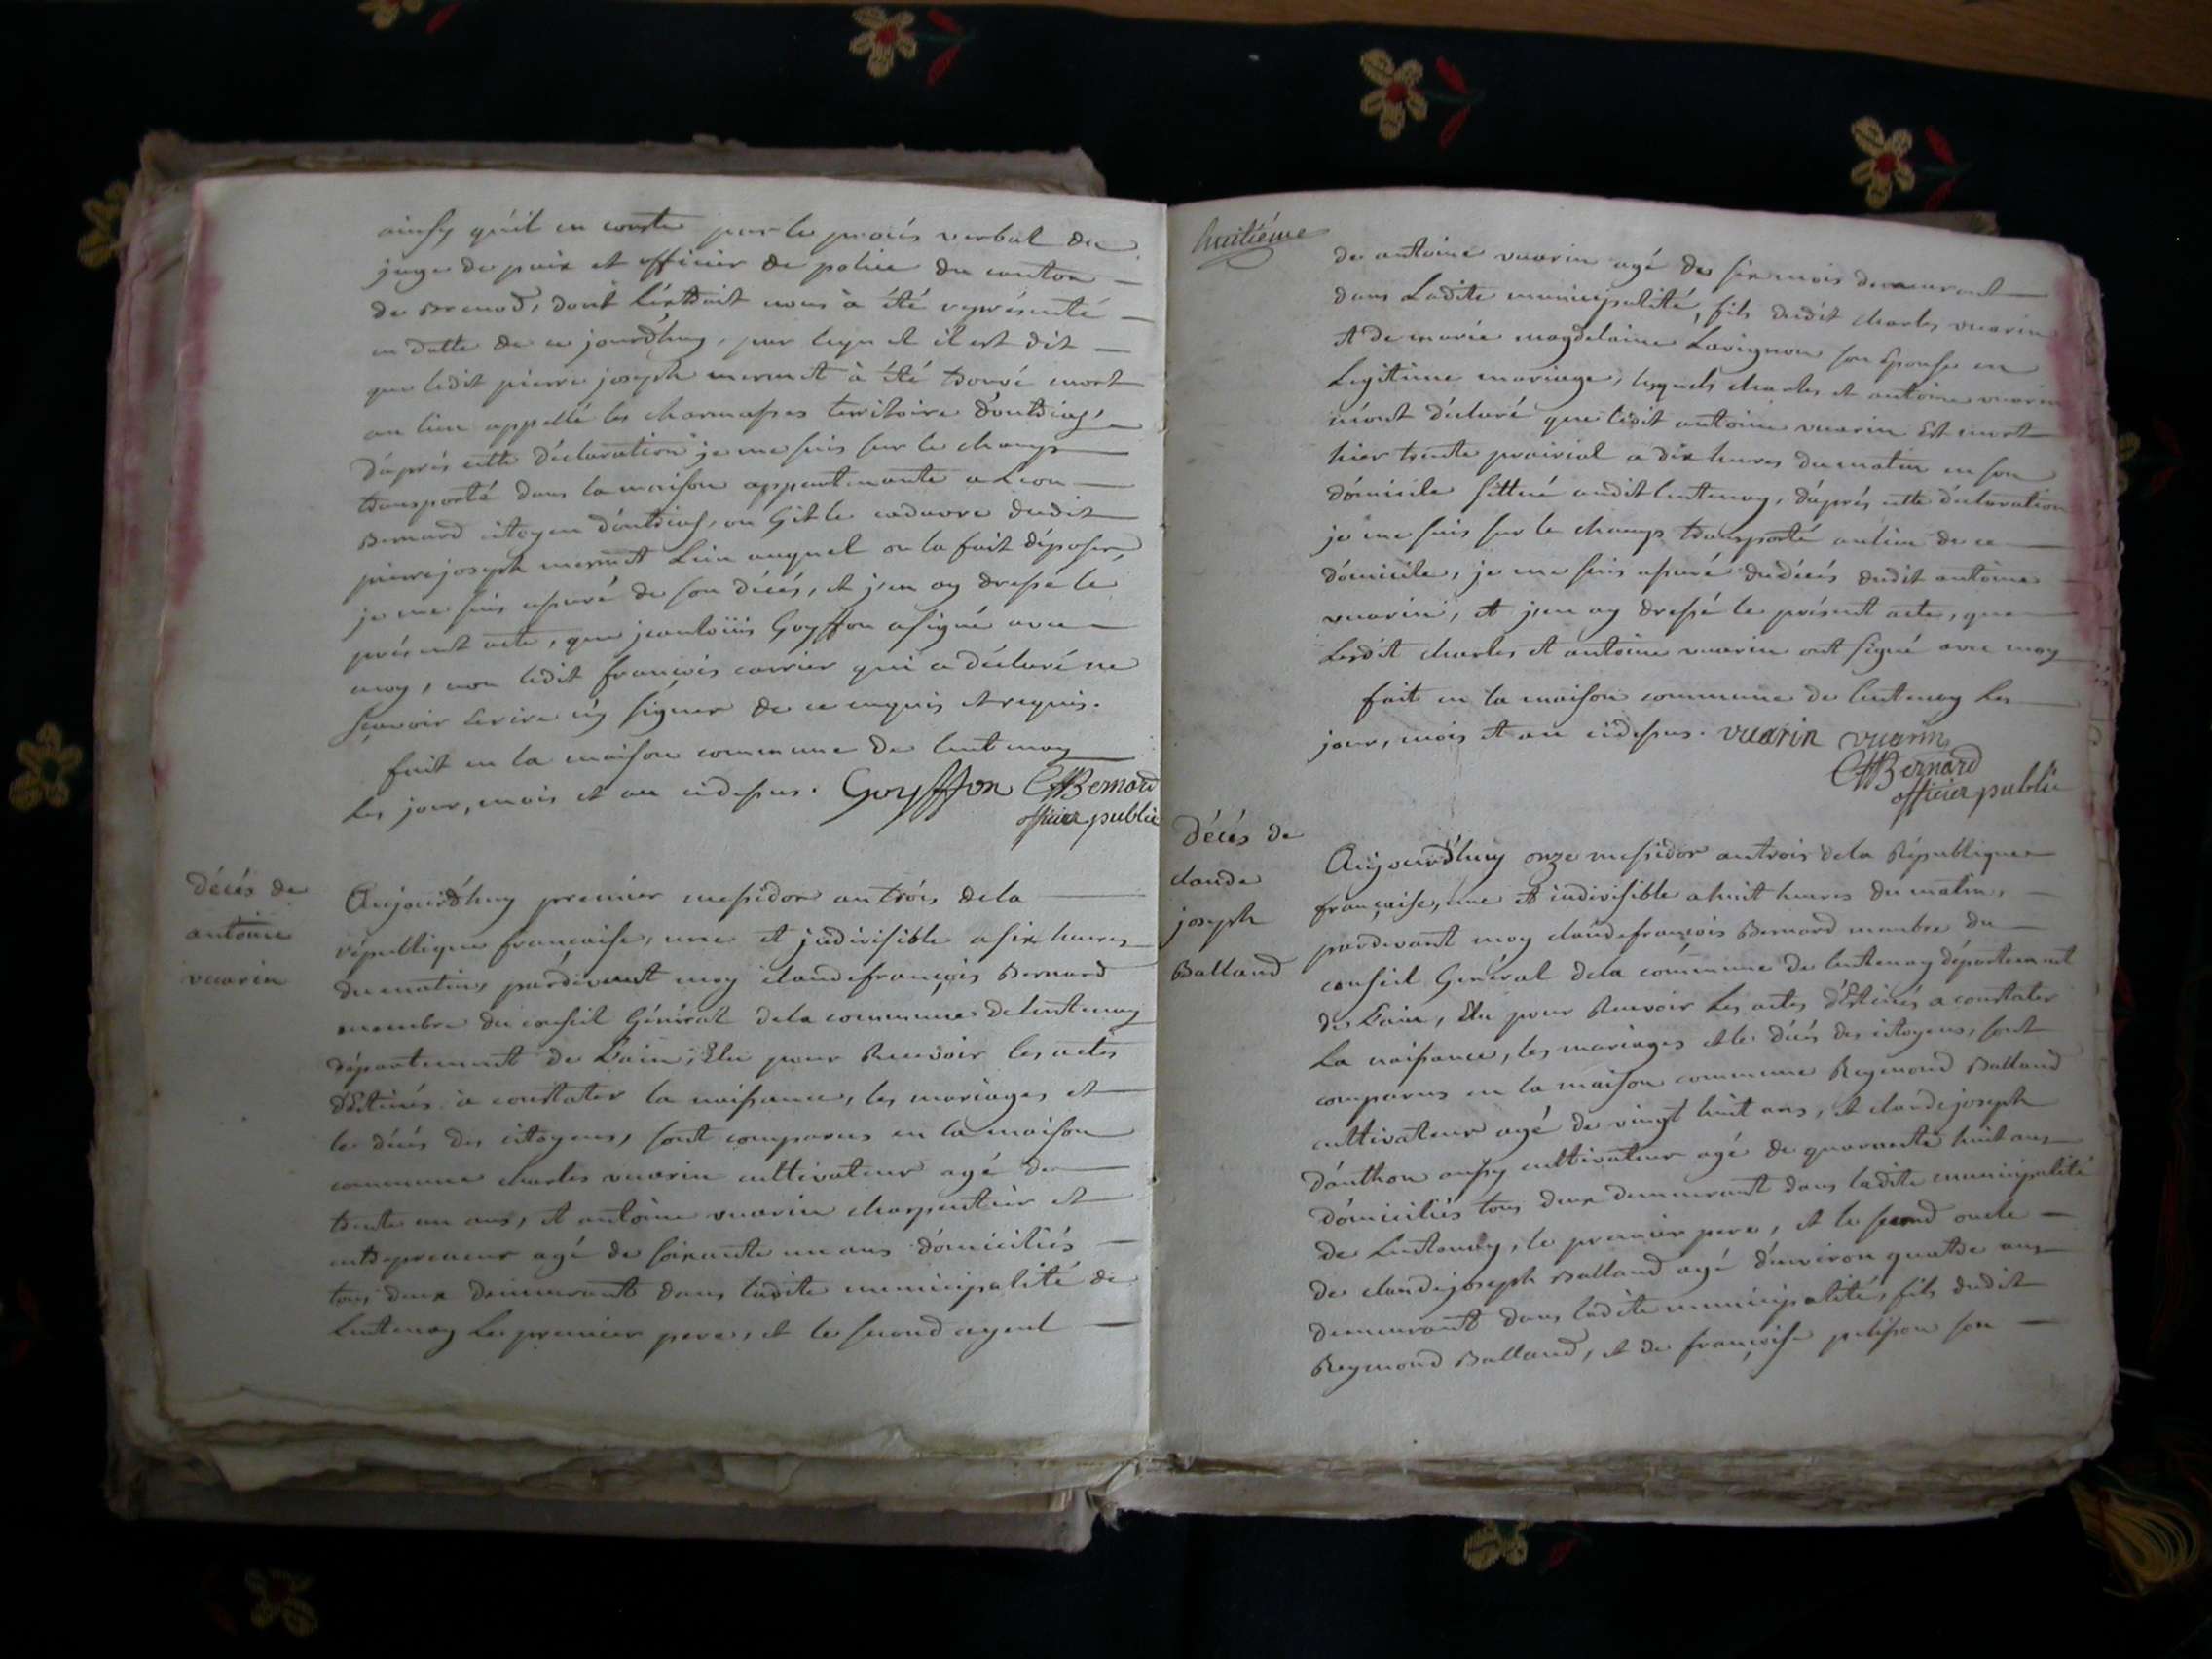 ainsy qu'il en conste par le procés verbal du
juge de paix et officier de police du canton
de Brenod, dont l'éxtrait nous à été représenté
en datte de ce jourd'huy, par lequel il est dit
que ledit pierre joseph mermet à été trouvé mort
au lieu appellé les charmasses territoire d'outriaz,
d'aprés cette déclaration je me suis sur le champ
transporté dans la maison appartenante a
Bernard citoyen d'outriaz, ou Gît le cadavre dudit
pierre joseph mermet Lieu auquel on la fait déposer,
je me suis assuré de son décés, et j'en ay dressé le
présent acte, que jeanloüis Goyffon a signé avec
moy, non ledit françois carrier qui a déclaré ne
sçavoir Ecrire n'y signer de ce enquis et requis.
fait en la maison commune de lentenay
Les jour, mois et an cidessus. Goyffon CfBernard
officier public
Décés de
antoine
vuarin
Aujourd'huy premier messidor an trois dela
république française, une et indivisible a six heures
du matin, pardevant moy claudefrançois Bernard
membre du conseil Général dela commune de lentenay
département de L'ain, Elu pour Recevoir les actes
déstinés à constater la naissance, les mariages et
le décés des citoyens, sont comparus en la maison
commune charles vuarin cultivateur agé de
trente un ans, et antoine vuarin charpentier et
entrepreneur agé de soixante un ans domiciliés
tous deux demeurant dans ladite municipalité de
Lentenay Le premier pere, et le second ayeul
huitiéme
de antoine vuarin agé de six mois demeurant
dans Ladite municipalité, fils dudit charles vuarin
et de marie magdelaine Lavignon son Epouse en
Legitime mariage, lesquels charles et antoine vuarin
m'ont déclaré que ledit antoine vuarin Est mort
hier trente prairial a dix heures du matin en son
domicile sittué audit lentenay, d'aprés cette déclaration
je me suis sur le champ transporté au lieu de ce
domicile, je me suis assuré du décés dudit antoine
vuarin, et j'en ay dressé le présent acte, que
Lesdit charles et antoine vuarin ont signé avec moy
fait en la maison commune de lentenay Les
jour, mois et an cidessus. vuarin vuarin
CfBernard
officier public
Décés de
claude
joseph
Balland
Aujourd'huy onze messidor an trois dela République
française, une et indivisible a huit heures du matin,
pardevant moy claudefrançois Bernard membre du
conseil Général dela commune de lentenay département
de L'ain, Elu pour Recevoir Les actes déstinés a constater
La naissance, les mariages et le décés des citoyens, sont
comparus en la maison commune Reymond Balland
cultivateur agé de vingt huit ans, et claudejoseph
d'anthon aussy cultivateur agé de quarante huit ans
domiciliés tous deux demeurant dans ladite municipalité
de Lentenay, le premier pere, et le second oncle
de claudejoseph Balland agé d'environ quatre ans
demeurant dans ladite municipalité, fils dudit
Reymond Balland, et de françoise pelisson son